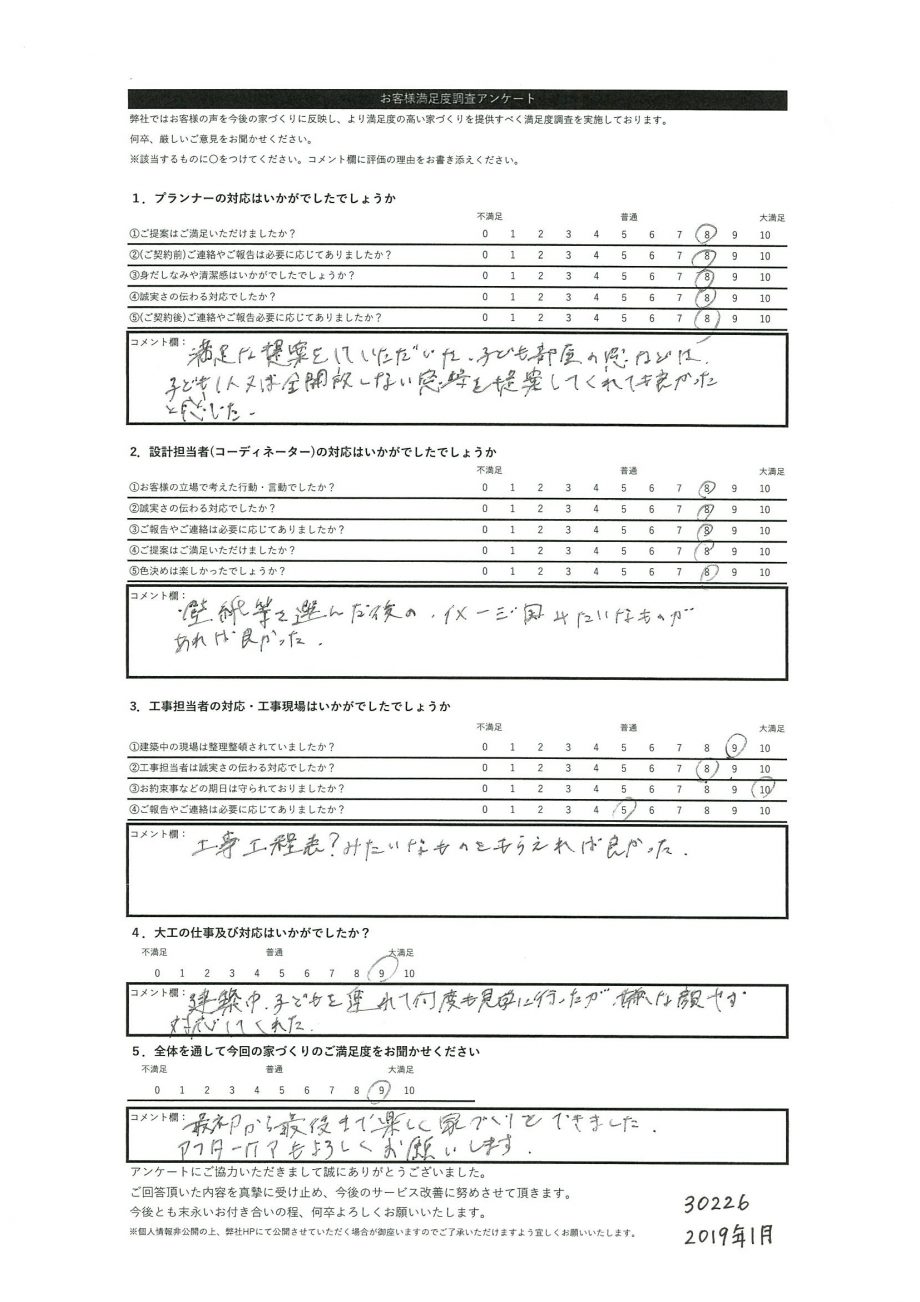 お客様満足度調査アンケート
弊社ではお客様の声を今後の家づくりに反映し、より満足度の高い家づくりを提供すべく満足度調査を実施しております。
何卒、厳しいご意見をお聞かせください。
※該当するものに〇をつけてください。コメント欄に評価の理由をお書き添えください。
1．プランナーの対応はいかがでしたでしょうか
不満足 普通 大満足
①ご提案はご満足いただけましたか？ 0 1 2 3 4 5 6 7 8 9 10
②(ご契約前)ご連絡やご報告は必要に応じてありましたか？ 0 1 2 3 4 5 6 7 8 9 10
③身だしなみや清潔感はいかがでしたでしょうか？ 0 1 2 3 4 5 6 7 8 9 10
④誠実さの伝わる対応でしたか？ 0 1 2 3 4 5 6 7 8 9 10
⑤(ご契約後)ご連絡やご報告必要に応じてありましたか？ 0 1 2 3 4 5 6 7 8 9 10
コメント欄： 満足な提案をしていただいた．子ども部屋の窓などは、
子ども1人又は全開放しない窓等を提案してくれても良かった
と感じた．
2．設計担当者(コーディネーター)の対応はいかがでしたでしょうか
不満足 普通 大満足
①お客様の立場で考えた行動・言動でしたか？ 0 1 2 3 4 5 6 7 8 9 10
②誠実さの伝わる対応でしたか？ 0 1 2 3 4 5 6 7 8 9 10
③ご報告やご連絡は必要に応じてありましたか？ 0 1 2 3 4 5 6 7 8 9 10
④ご提案はご満足いただけましたか？ 0 1 2 3 4 5 6 7 8 9 10
⑤色決めは楽しかったでしょうか？ 0 1 2 3 4 5 6 7 8 9 10
コメント欄： ・壁紙等を選んだ後の、イメージ図みたいなものが
あれば良かった．
3．工事担当者の対応・工事現場はいかがでしたでしょうか
不満足 普通 大満足
①建築中の現場は整理整頓されていましたか？ 0 1 2 3 4 5 6 7 8 9 10
②工事担当者は誠実さの伝わる対応でしたか？ 0 1 2 3 4 5 6 7 8 9 10
③お約束事などの期日は守られておりましたか？ 0 1 2 3 4 5 6 7 8 9 10
④ご報告やご連絡は必要に応じてありましたか？ 0 1 2 3 4 5 6 7 8 9 10
コメント欄： 工事工程表？みたいなものをもらえれば良かった．
4．大工の仕事及び対応はいかがでしたか？
不満足 普通 大満足
0 1 2 3 4 5 6 7 8 9 10
コメント欄： 建築中、子どもを連れて何度も見学に行ったが、嫌な顔せず
対応してくれた．
5．全体を通して今回の家づくりのご満足度をお聞かせください
不満足 普通 大満足
0 1 2 3 4 5 6 7 8 9 10
コメント欄： 最初から最後まで楽しく家づくりをできました．
アフターケアもよろしくお願いします．
アンケートにご協力いただきまして誠にありがとうございました。
ご回答頂いた内容を真摯に受け止め、今後のサービス改善に努めさせて頂きます。
今後とも末永いお付き合いの程、何卒よろしくお願いいたします。
※個人情報非公開の上、弊社HPにて公開させていただく場合が御座いますのでご了承いただけますよう宜しくお願いいたします。
30226
2019年1月